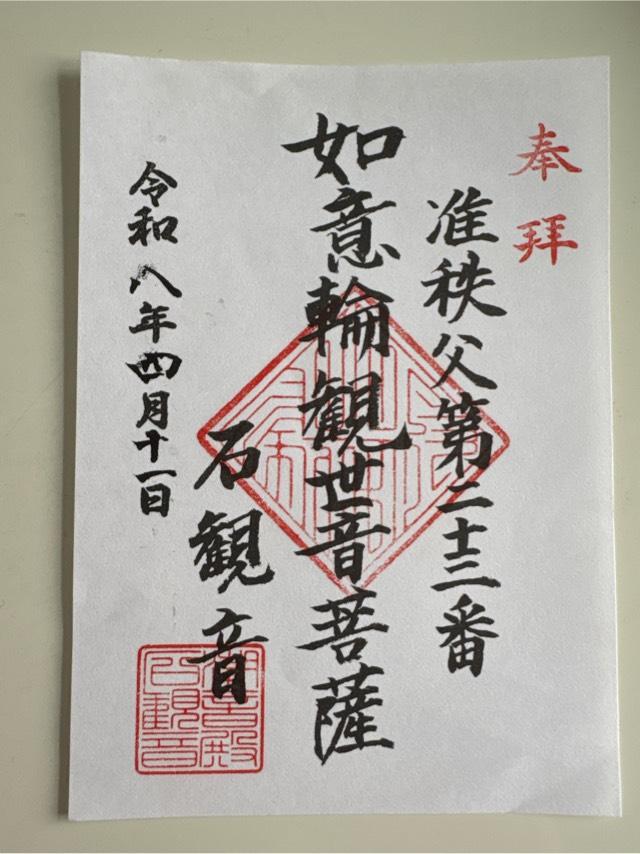 奉拝
准秩父第二十三番
如意輪観世音菩薩
石観音
令和八年四月十一日